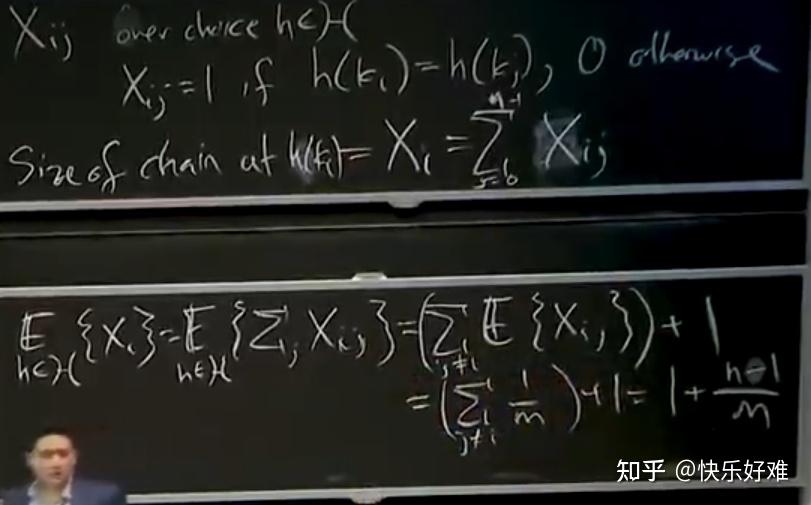 X_{ij} over choice h∈H
X_{ij}=1 if h(k_i)=h(k_j), 0 otherwise
Size of chain at h(k_i)= X_i = \sum_{j=0}^{n-1} X_{ij}
\mathbb{E}_{h∈H}{X_i}=\mathbb{E}_{h∈H}{\sum_j X_{ij}}=(\sum_{j≠i} \mathbb{E}{X_{ij}})+1
=(\sum_{j≠i} \frac{1}{m})+1=1+\frac{n-1}{m}
知乎 @快乐好难